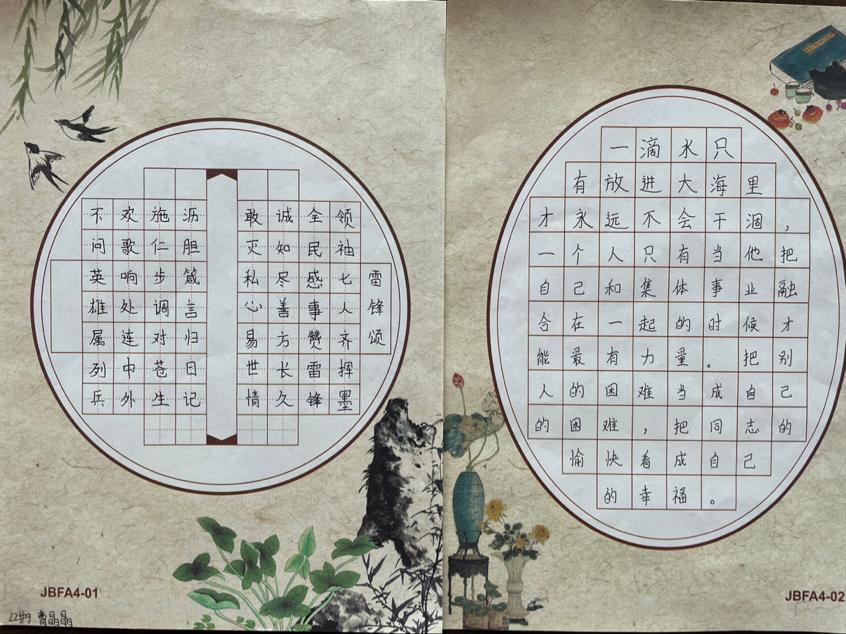 雷锋颂
领袖七人齐挥墨
全民感事赞雷锋
诚如尽善方长久
敢灭私心易世情
沥胆箴言归日记
施仁步调对苍生
欢歌响处连中外
不问英雄属列兵
JBFA4-01
一滴水只
有放进大海里
才永远不会干涸，
一个人只有当他把
自己和集体事业融
合在一起的时候才
能最有力量。把别
人的困难当成自己
的困难，把同志的
愉快看成自己
的幸福。
JBFA4-02